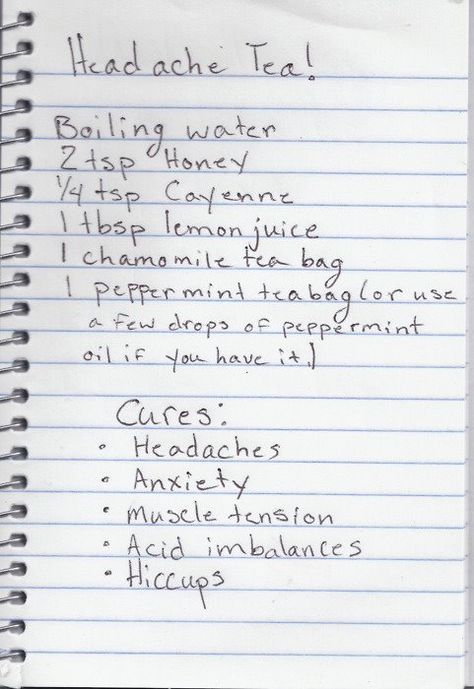 Headache Tea!
Boiling water
2 tsp Honey
1/4 tsp Cayenne
1 tbsp lemon juice
1 chamomile tea bag
1 peppermint tea bag (or use
a few drops of peppermint
oil if you have it.)
Cures:
• Headaches
• Anxiety
• Muscle tension
• Acid imbalances
• Hiccups